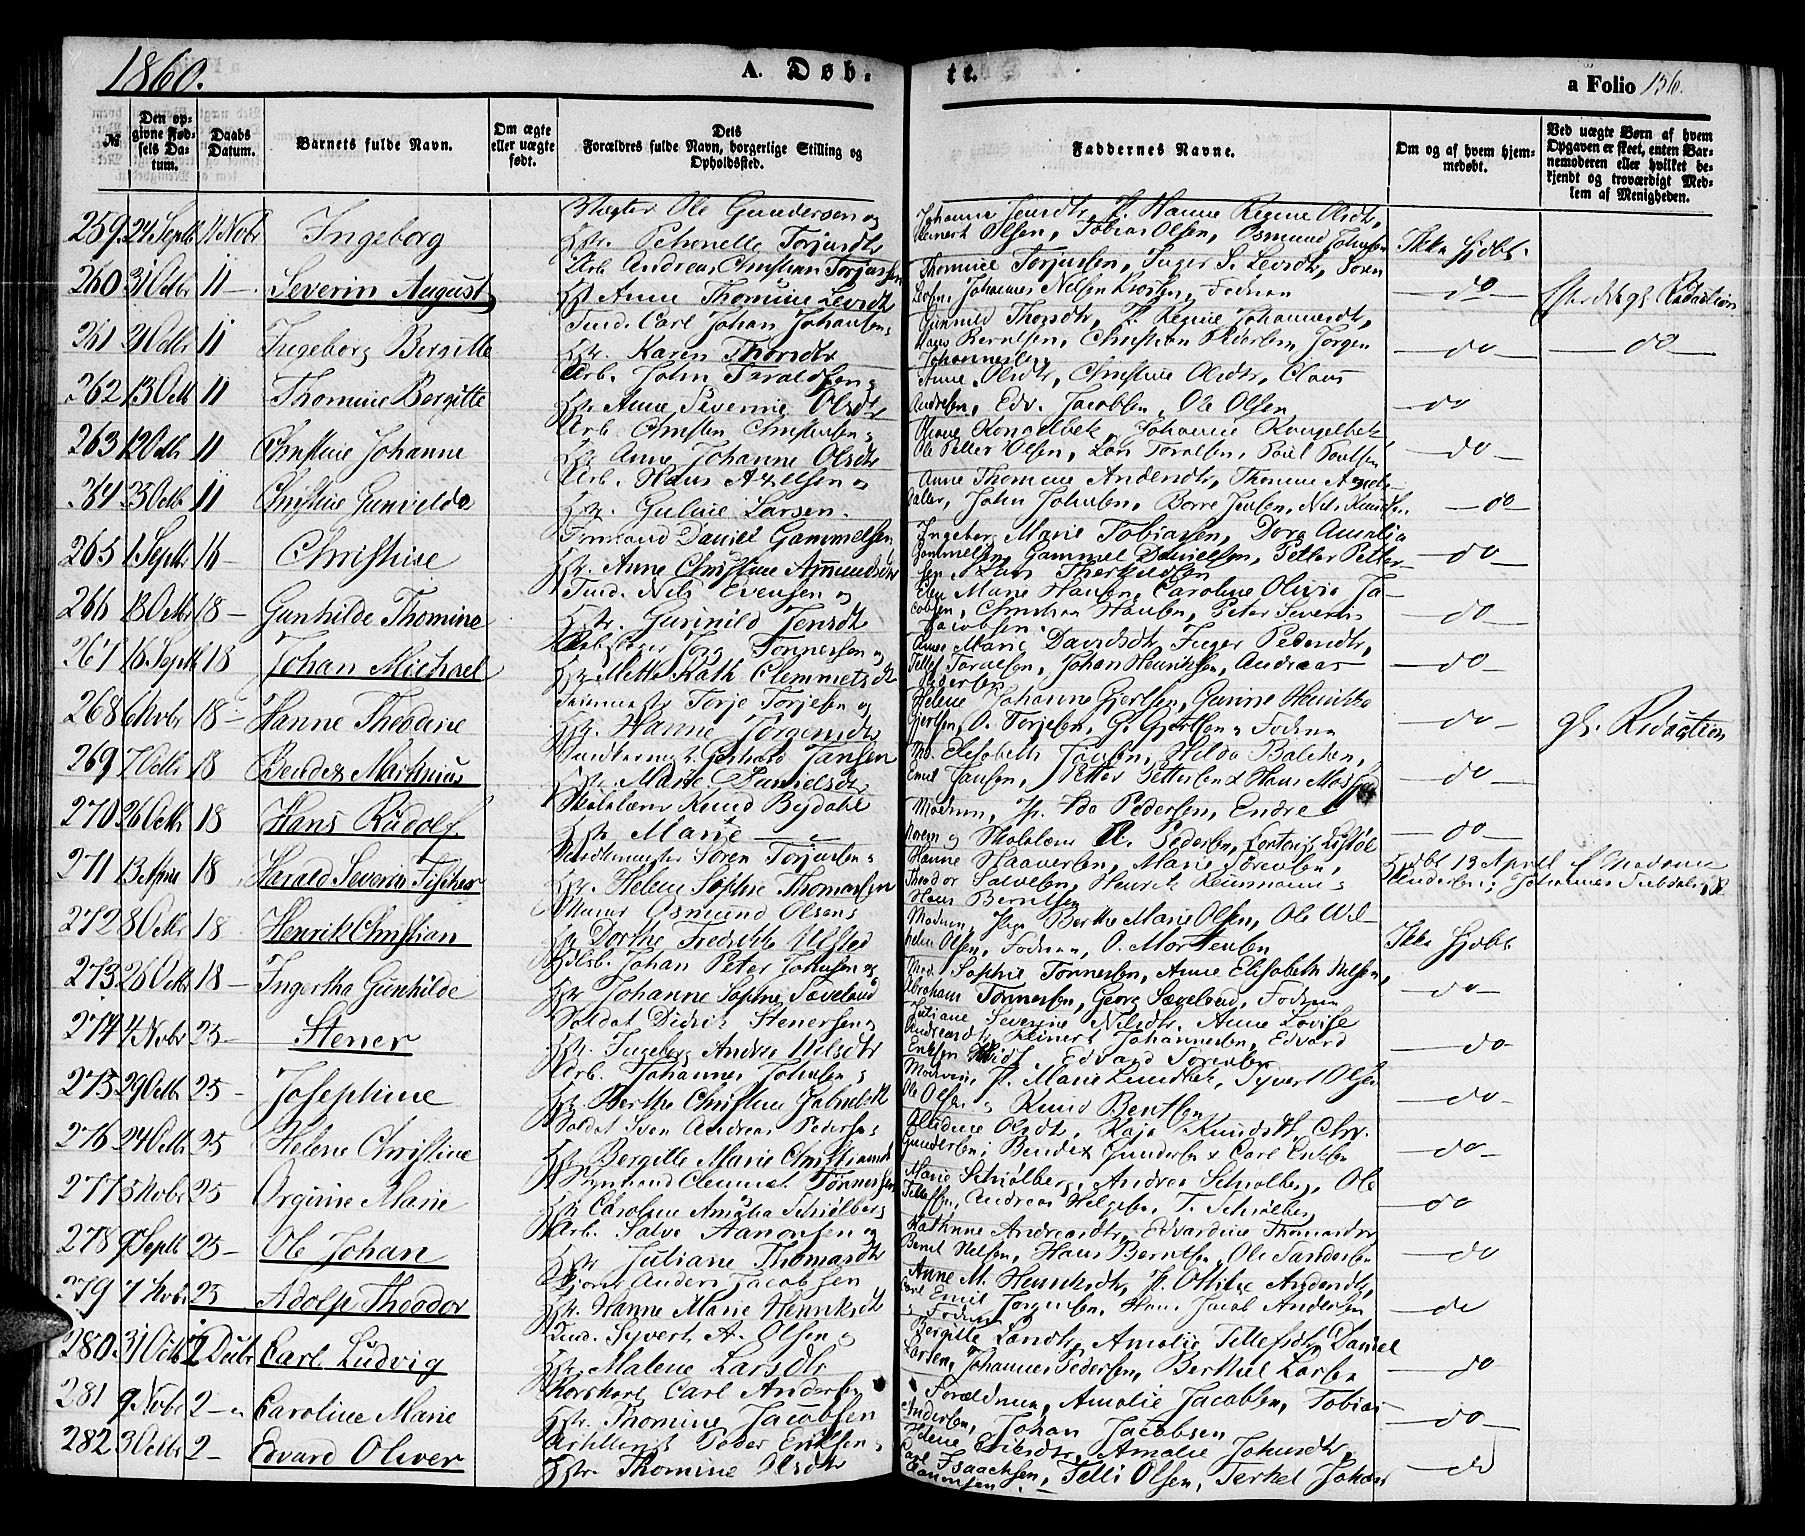 1860.
A. Døb-
te.
a Folio 156.
№
Den opgivne Fødsels Datum.
Daabs Datum.
Barnets fulde Navn.
Om ægte eller uægte født.
Dets Forældres fulde Navn, borgerlige Stilling og Opholdssted.
Faddernes Navne.
Om og af hvem hjemmedøbt.
Ved uægte Børn af hvem Opgaven er skeet, enten Barnemoderen eller hvilket bekjendt og troværdigt Medlem af Menigheden.
259 24 Septb 11 Nobr Ingeborg
Ole Gundersen og
Hstr. Petronelle Torjusdtr
Johanne Jensdtr, J. Hanne Regine Olsdtr,
Reinert Olsen, Tobias Olsen, Osmund Johnsen
Ikke hjdbt.
260 31 Octbr 11 — Severin August
Arb. Andreas Christian Torjussen
Hst Anne Thomine Levsdtr
Thomine Torjussen, Inger S. Levsdtr, Søren
Johannes Nilsen, Fadrene
— do —
261 21 Octbr 11 Ingeborg Bergitte
Tind. Carl Johan Johansen &
Hstr. Karen Thorsdtr
Gunnild Thorsdtr, J. Regine Johannesdtr,
Hans Berntsen, Christian Pedersen Jørgen
Johannessen
— do — — do —
262 13 Octb 11 Thomine Bergitte
Arb. John Taraldsen &
Hstr. Anne Severine Olsdtr
Anne Olsdtr, Christine Olsdtr, Claus
Andersen, Edv. Jacobsen, Ole Olsen
— do
263 12 Octb 11 Christine Johanne
Arb. Christen Christensen &
Hstr Anne Johanne Olsdtr
Ole Petter Olsen, Lars Torelsen, Poul Poulsen
— do —
264 23 Octbr 11 Christine Gunvilda
Arb. Hans Axelsen &
Hstr. Guline Larsen.
Anne Thomine Andersdtr, Thomine
John Johnsen, Børre Jensen, Nils Knudsen
— do
265 1 Septbr 16 — Christine
Daniel Gammelsen
Hstr. Anne Christine Asmundsdtr
Ingeborg Marie Tobiassen, Dora Amalia
Gammelsen, Gammel Danielsen, Petter Petter-
sen Hans Therkildsen
— do —
266 18 Octbr 18 — Gunhilde Thomine
Tind. Nils Evensen og
Hstr. Gunnild Jensdtr
Else Marie Hansen, Caroline Olivia Ja-
cobsen, Christian Hansen, Peter Severin
Jacobsen.
— do —
267 16 Septb 18 Johan Michael
Jørg Tønnesen og
Hstr Mette Kath. Clemmetsdtr
Anne Marie Davidsdtr, Inger Pedersdtr,
Tellef Torelsen, Johan Henriksen, Andreas
Pedersen
— do —
268 6 Nobr 18 — Hanne Theodine
Terje Terjesen og
Hstr. Hanne Jørgensdtr
Helene Johanne Gjertsen, Gunine Henrikke
Gjertsen, O. Terjesen, G. Gjertsen & Fadrene
— do — gl. Redaction
269 7 Octbr 18 Bendix Marthinus
Gerhard Jansen
Hstr. Marie Danielsdtr
Md. Elisabeth Jansen, Hilda Balchen,
Emil Jansen, Petter Pettersen & Hans
— do —
270 26 Octbr 18 Hans Rudolf
Skolelærer Knud Bydahl
Hstr Marie —
Modren, Jf. Ida Pedersen, Endre
Skolelærer Pedersen,
— do —
271 13 April 18 Harald Severin Fischer
Søren Torjussen &
Hstr. Helene Sophie Thomassen
Hanne Haaversen, Marie Torelsen,
Theodor Salvesen, Henrik Reinmann &
Hans Berntsen
Hjdbt 13 April af Madame
Andersen;
272 8 Octbr 18 Henrik Christian
Murer Osmund Olsen &
Hstr Dorthe Fredrikke Ulsted
Modren, Berthe Marie Olsen, Ole Wil-
helm Olsen, Fadren, O. Mortensen
Ikke hjdbt
273 26 Octbr 18 — Ingertha Gunhilde
Johan Peter Johnsen og
Hstr Johanne Sophie Sæveland
Mad. Sophie Tønnesen, Anne Elisabeth Nilsen,
Abraham Tønnesen, Georg Sæveland, Fadren
— do —
274 4 Nobr 25 — Stener
Soldat Didrik Stenersen &
Hstr. Ingeborg Andrea Nilsdtr
Juliane Severine Nilsdtr, Anne Lovise
Andreasdtr, Reinert Johannessen, Edvard
Eriksen Edvard Torensen
— do
275 29 Octbr 25 — Josephine
Arb. Johannes Johnsen &
Hstr. Berthe Christine Gabrielsdtr
Modren, J. Marie Lundbek, Syvert Olsen
Ole Olsen & Knud Bentsen
— do —
276 24 Octbr 25 Helene Christine
Soldat Sven Andreas Pedersen &
Hstr Bergitte Marie Christiansdtr
Olsdtr, Kaja Knudsdtr, Chr.
Gundersen; Bendix Gundersen & Carl Eriksen
— do —
277 5 Nobr 25 Orginie Marie
Clemmet Tønnessen
Hstr Caroline Amalia Schiølberg
Marie Schiølberg, Andrea Schiølberg, Ole
Tellefsen, Andreas Helgesen, T. Schiølberg
— do
278 9 Septb 25 — Ole Johan
Arb. Salve Aanonsen og
Hstr Juliane Thomasdtr
Kathrine Andreasdtr, Edvardine Thomasdtr
Bernt Nilsen, Hans Berntsen, Ole Sandersen
— do
279 7 Nobr 25 Adolf Theodor
Anders Jacobsen
Hstr. Hanne Marie Henriksdtr
Anne M. Henriksdtr, J. Ottilie Andersdtr,
Carl Emil Jørgensen, Hans Jacob Andersen
& Fadren
— do
280 31 Octb 2 Decbr Carl Ludvig
Tind. Syvert A. Olsen &
Hstr. Malene Larsdtr
Bergitte Larsdtr, Amalie Tellefsdtr, Daniel
Larsen, Johannes Pedersen, Berthel Larsen
— do
281 9 Nobr 2 — Caroline Marie
Carl Andersen
Hstr. Thomine Jacobsen
Forældrene, Amalie Jacobsen, Tobias
Andersen, Johan Jacobsen
— do —
282 3 Octbr 2 — Edvard Oliver
Peder Eriksen &
Hstr. Thomine Olsdtr
Helene Eriksdtr, Amalie Johnsdtr,
Carl Isaachsen, Telle Olsen, Terkel Johan
Aanonsen.
— do